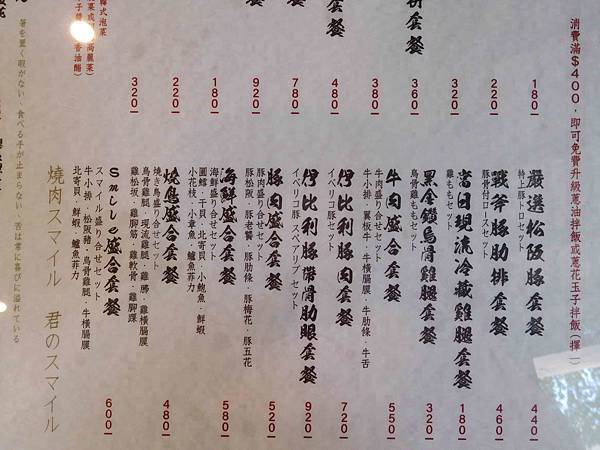 消費滿$400，即可免費升級蔥油拌飯或蔥花玉子拌飯(擇一)
180
220
320
360
380
480
780
920
180
220
320
套餐
嚴選松阪豚套餐
特上豚トロセット
440
戰斧豚肋排套餐
豚骨付ロースセット
460
當日現流冷藏雞腿套餐
雞ももセット
180
黑金鑽烏骨雞腿套餐
烏骨雞ももセット
320
牛肉盛合套餐
牛肉盛り合せセット
牛小排．翼板牛．牛橫膈膜．牛肋條．牛舌
550
伊比利豚肉套餐
イベリコ豚セット
720
伊比利豚帶骨肋眼套餐
イベリコ豚 スペアリブセット
920
豚肉盛合套餐
豚肉盛り合せセット
豚松阪．豚老饕．豚肋條．豚梅花．豚五花
520
海鮮盛合套餐
海鮮盛り合せセット
圓鱈．干貝．北寄貝．小鮑魚．鮮蝦
小花枝．小章魚．鱸魚菲力
580
燒鳥盛合套餐
燒き鳥盛り合せセット
烏骨雞腿．現流雞腿．雞胗．雞橫膈膜
雞松坂．雞腳筋．雞軟骨．雞腳踝
480
Smile盛合套餐
スマイル盛り合せセット
牛小排．松阪豬．烏骨雞腿．牛橫膈膜
北寄貝．鮮蝦．鱸魚菲力
600
燒肉スマイル　君のスマイル
箸を置く暇がない、食べる手が止まらない、舌は常に喜びに溢れている